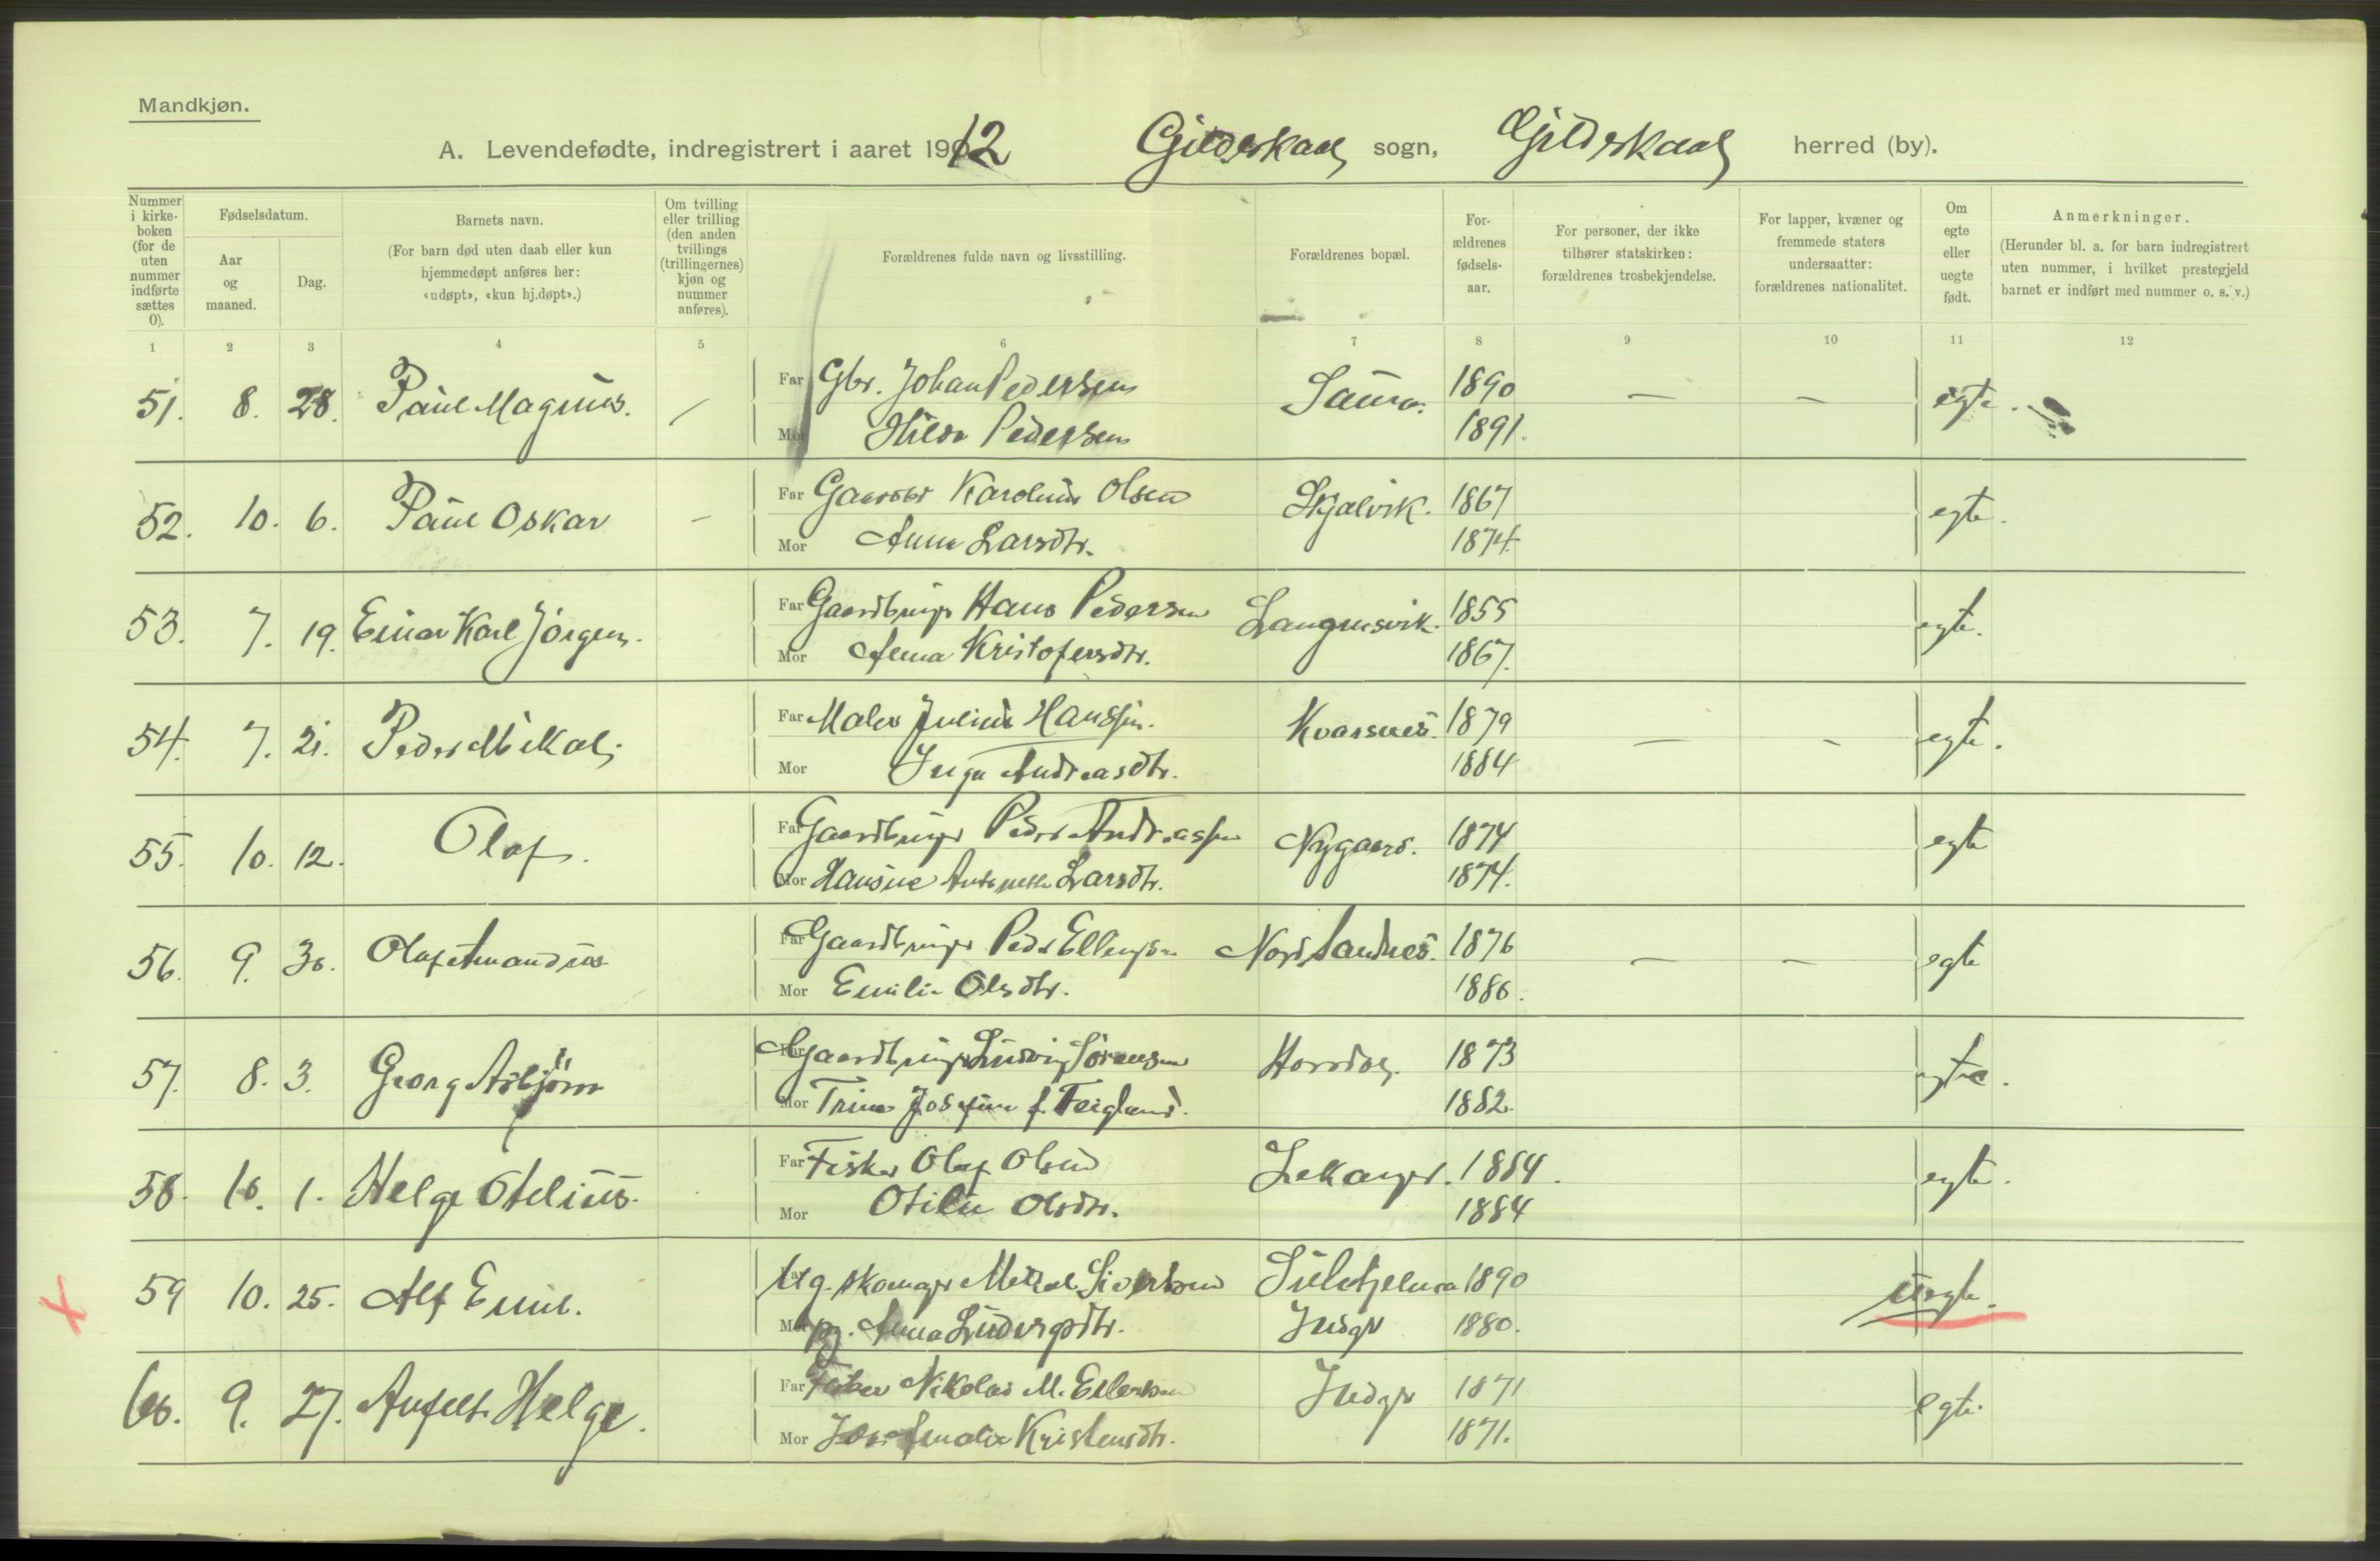 Mandkjøn.
A. Levendefødte, indregistrert i aaret 1912 Gildeskaal sogn, Gildeskaal herred (by).
Nummer i kirke-boken (for de uten nummer indførte sættes 0).
Fødselsdatum.
Aar og maaned.
Dag.
Barnets navn.
(For barn død uten daab eller kun hjemmedøpt anføres her: «udøpt», «kun hj.døpt».)
Om tvilling eller trilling (den anden tvillings (trillingernes) kjøn og nummer anføres).
Forældrenes fulde navn og livsstilling.
Forældrenes bopæl.
For-ældrenes fødsels-aar.
For personer, der ikke tilhører statskirken: forældrenes trosbekjendelse.
For lapper, kvæner og fremmede staters undersaatter: forældrenes nationalitet.
Om egte eller uegte født.
Anmerkninger.
(Herunder bl. a. for barn indregistrert uten nummer, i hvilket prestegjeld barnet er indført med nummer o. s. v.)
1 2 3 4 5 6 7 8 9 10 11 12
51. 8. 28. Paul Magnus. / Far Gbr. Johan Pedersen Saura. 1890 — — egte.
Mor Hilda Pedersen 1891.
52. 10. 6. Paul Oskar — Far Gaardbr Karolius Olsen Skjalvik. 1867 egte.
Mor Anna Larsdtr. 1874.
53. 7. 19. Einar Karl Jørgen. Far Gaardbruger Hans Pedersen Langnesvik. 1855 egte.
Mor Anna Kristofersdtr. 1867.
54. 7. 21. Peder Mikal Far Maler Julius Hanssen. Kvarsnes. 1879 — — egte.
Mor Inga Andreasdtr. 1884
55. 10. 12. Olaf. Far Gaardbruger Peder Andreassen Nygaard. 1874 egte
Mor Hansine Antonette Larsdtr. 1874.
56. 9. 30. Olaf Amandus Far Gaardbruger Peder Ellingsen Nordsandnes. 1876 — — egte
Mor Emilie Olsdtr. 1886.
57. 8. 3. Georg Asbjørn Far Gaardbruger Ludvig Sørensen Horsdal. 1873 egte.
Mor Trine Josefine f. Feigland. 1882.
58. 10. 1. Helge Otelius. Far Fisker Olaf Olsen Lekanger. 1884. egte.
Mor Otilie Olsdtr. 1884
59 10. 25. Alf Emil. Far Ug. skomager Mikal Sivertsen Sulitjelma 1890 uegte.
Mor pg. Anna Ludvigsdtr. Indyr 1880.
60. 9. 27. Anfelt Helge. Far Fisker Nikolai M. Edvardsen Indyr 1871 egte.
Mor Amalie Kristensdtr. 1871.